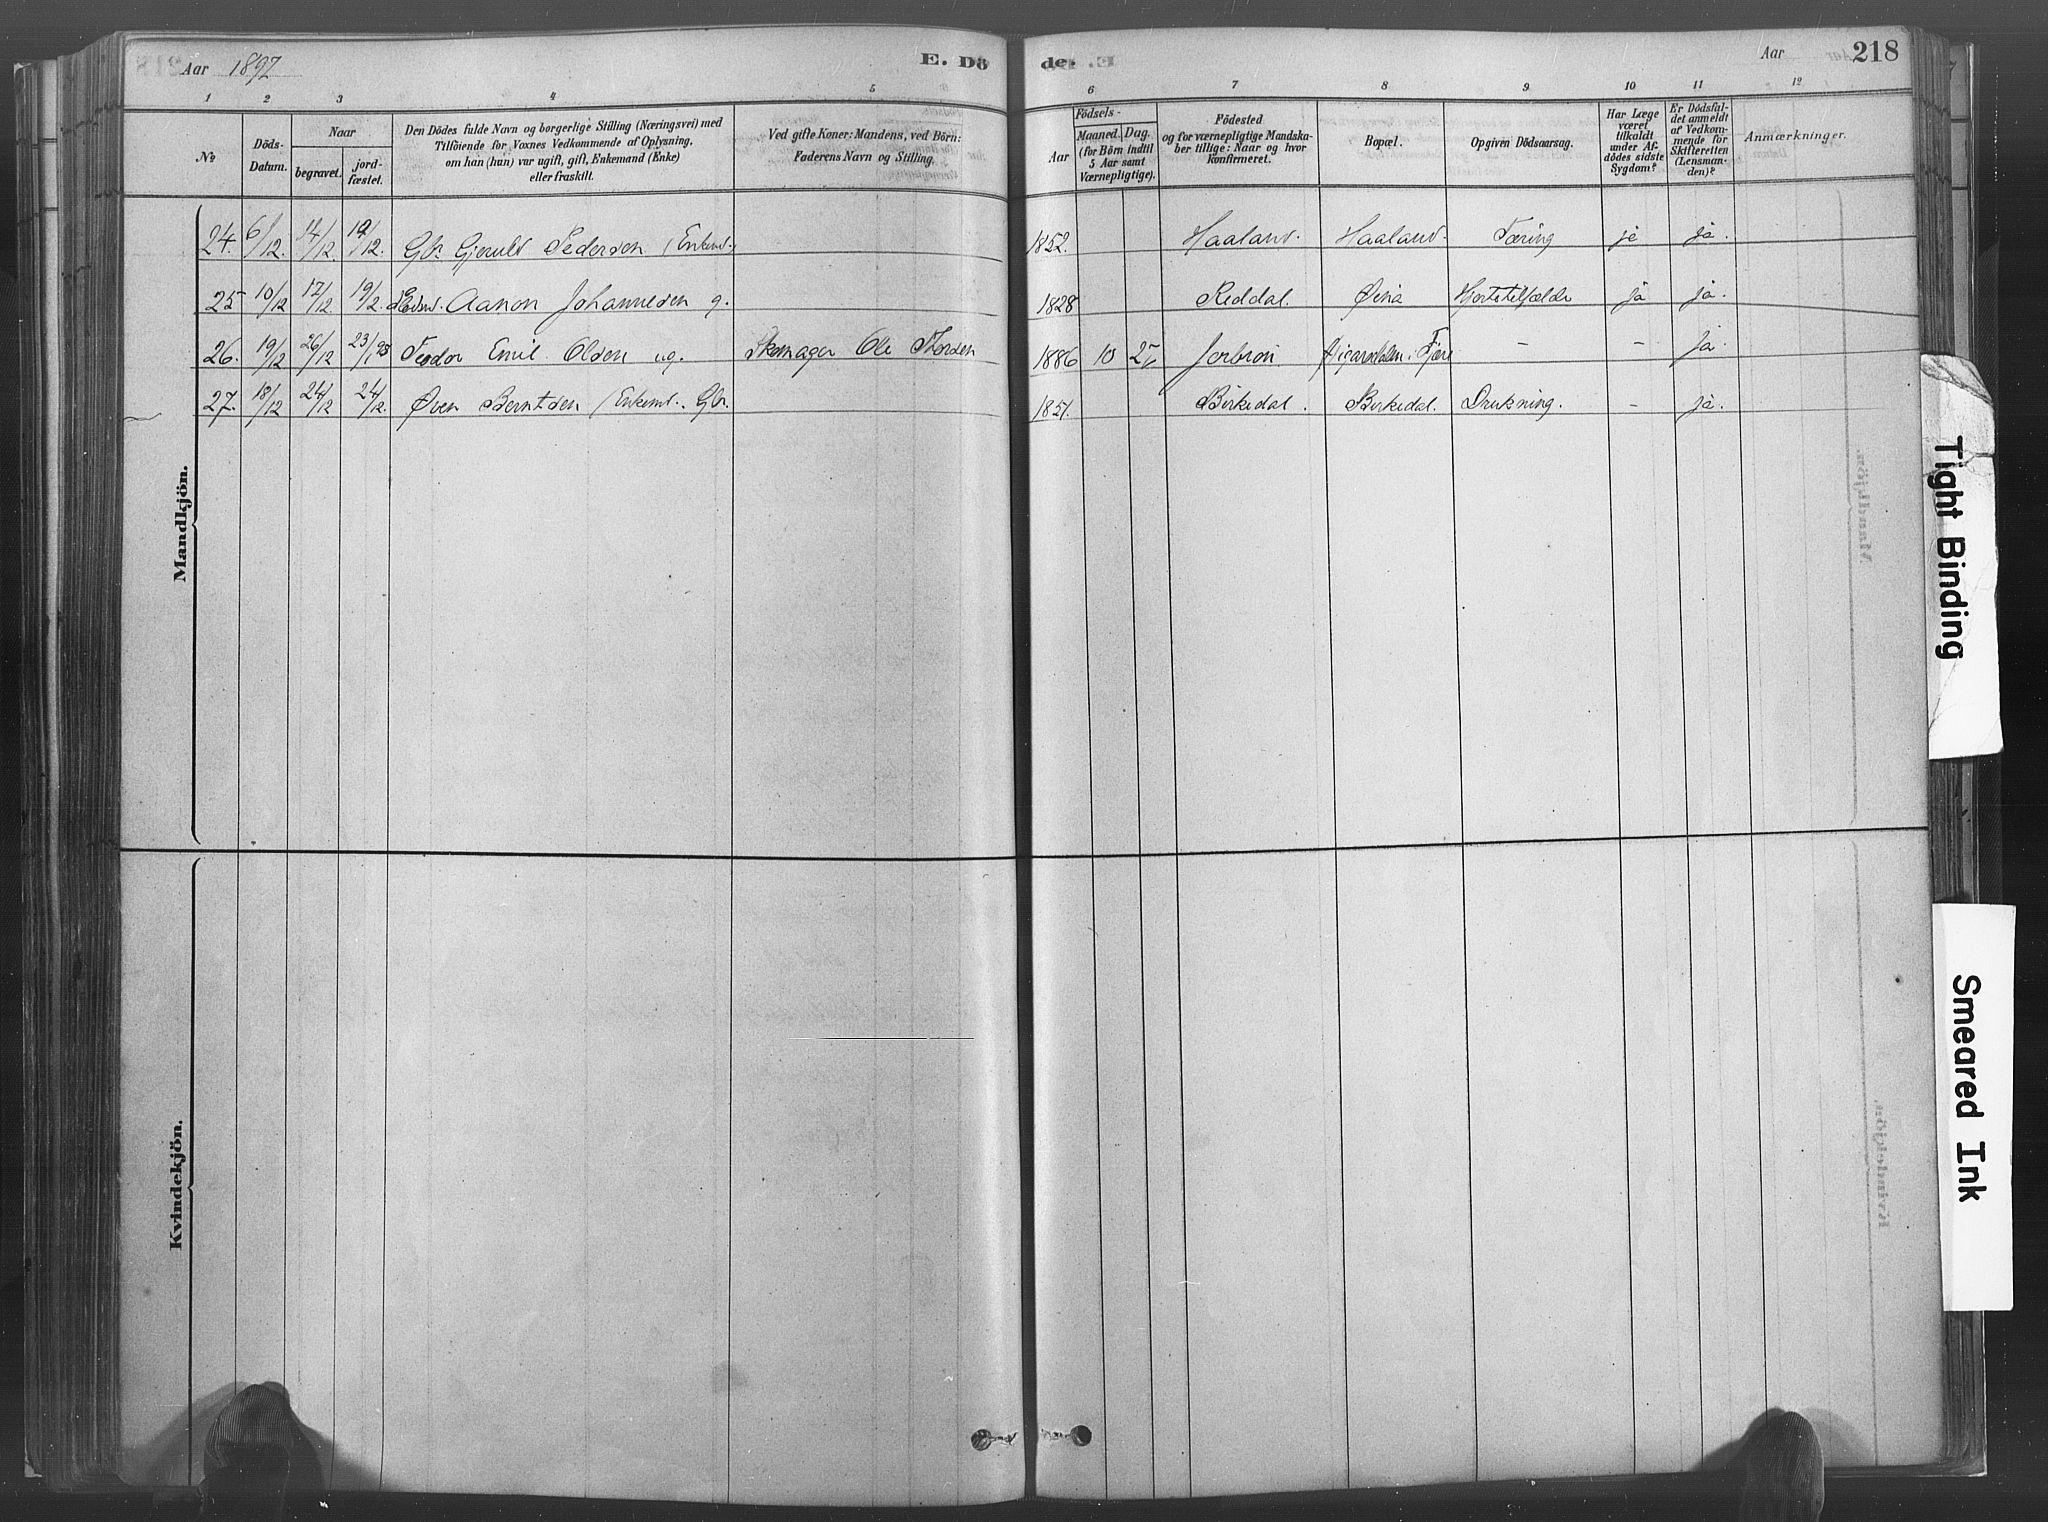 Aar 1892
E. Dö
de.
Aar
218
1 2 3 4 5 6 7 8 9 10 11 12
No
Döds-
Datum.
Naar
begravet.
jord-
fæstet.
Den Dödes fulde Navn og borgerlige Stilling (Næringsvei) med
Tilföiende for Voxnes Vedkommende af Oplysning,
om han (hun) var ugift, gift, Enkemand (Enke)
eller fraskilt.
Ved gifte Koner: Mandens, ved Börn:
Faderens Navn og Stilling.
Födsels-
Aar
Maaned. Dag.
(for Börn indtil
5 Aar samt
Værnepligtige).
Födested
og for værnepligtige Mandska-
ber tillige: Naar og hvor
Konfirmeret.
Bopæl.
Opgiven Dödsaarsag.
Har Læge
været
tilkaldt
under Af-
dödes sidste
Sygdom?
Er Dödsfal-
det anmeldt
af Vedkom-
mende for
Skifteretten
(Lensman-
den)?
Anmærkninger.
24. 6/12 14/12 19/12. Gbr Gjeruld Pedersen (Enkem. 1852. Haaland. Haaland. Tæring ja ja.
25 10/12 17/12 19/12. Aanon Johannesen g. 1828 Reddal. Øvia Hjertetilfælde ja ja.
26. 19/12 26/12 23/1 93 Teodor Emil Olsen ug. Skomager Ole Thorsen 1886 10 Jorbron i Fjære - - ja.
27. 18/12 24/12 24/12. Øven Berntsen (Enkem. Gbr. 1851. Birkedal. Birkedal. Drukning. - ja.
Mandkjön.
Kvindekjön.
Tight Binding
Smeared Ink